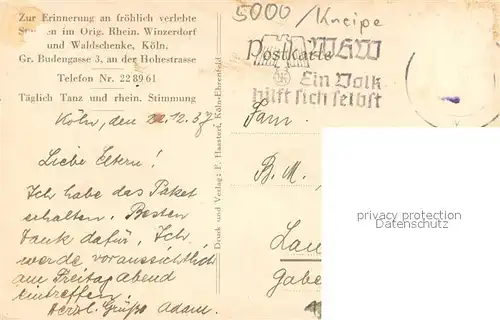 Zur Erinnerung an fröhlich verlebte
Stunden im Orig. Rhein. Winzerdorf
und Waldschenke, Köln,
Gr. Budengasse 3, an der Hohestrasse
Telefon Nr. 228961
Täglich Tanz und rhein. Stimmung
Köln, den 22.12.37.
Liebe Eltern!
Ich habe das Paket
erhalten. Besten
Dank dafür. Ich
werde voraussichtlich
am Freitag abend
eintreffen.
Herzl. Grüße Adam.
Druck und Verlag: F. Hasstert, Köln-Ehrenfeld
5000 / Kneipe
Postkarte
WHW
Ein Volk
hilft sich selbst
Fam.
B. M.
privacy protection
Copyright